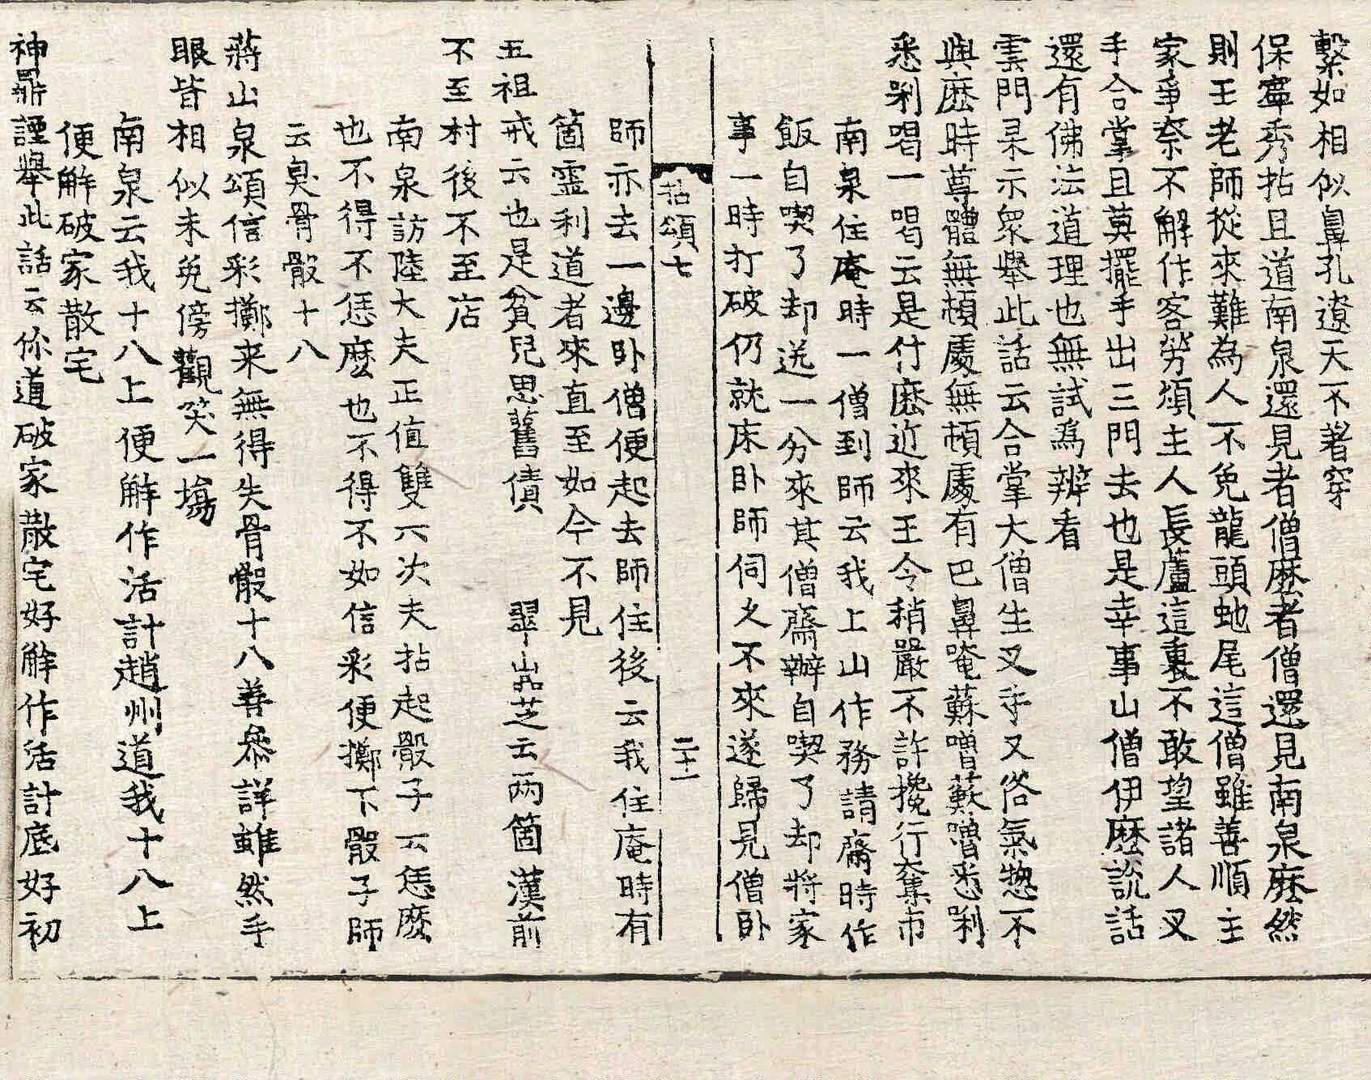 繫如相似鼻孔遼天不著穿
保寧秀拈且道南泉還見者僧麽者僧還見南泉麽然
則王老師從來難為人不免龍頭虵尾這僧雖善順主
家爭柰不解作客勞煩主人長蘆這裏不敢望諸人叉
手合掌且莫擺手出三門去也是幸事山僧伊麽說話
還有佛法道理也無試爲辨看
雲門杲示衆舉此話云合掌大僧生叉手又俗氣惣不
與麽時尊體無頓處無頓處有巴鼻唵蘇嚕蘇嚕悉唎
悉唎喝一喝云是什麽近來王令稍嚴不許攙行奪市
南泉住庵時一僧到師云我上山作務請齋時作
飯自喫了却送一分來其僧齋辦自喫了却將家
事一時打破仍就床卧師伺久不來遂歸見僧卧
拈頌七 二十一
師亦去一邊卧僧便起去師住後云我住庵時有
箇靈利道者來直至如今不見
五祖戒云也是貧兒思舊債 翠嵓芝云兩箇漢前
不至村後不至店
南泉訪陸大夫正值雙六次夫拈起骰子云恁麽
也不得不恁麽也不得不如信彩便擲下骰子師
云臭骨骰十八
蔣山泉頌信彩擲来無得失骨骰十八善叅詳雖然手
眼皆相似未免傍觀笑一塲
南泉云我十八上便解作活計趙州道我十八上
便解破家散宅
神鼎諲舉此話云你道破家散宅好解作活計底好初